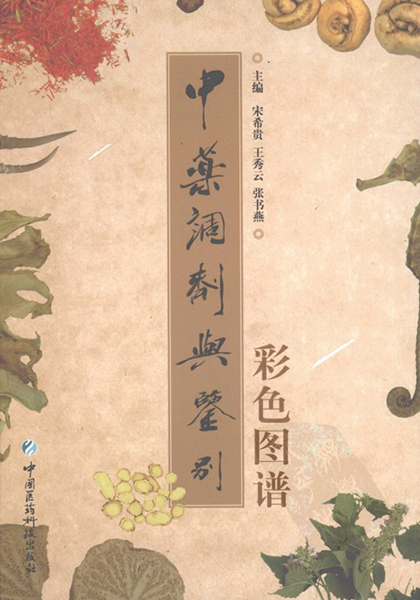 中药調剂與鑒别
彩色图谱
主编 宋希贵 王秀云 张书燕
中国医药科技出版社